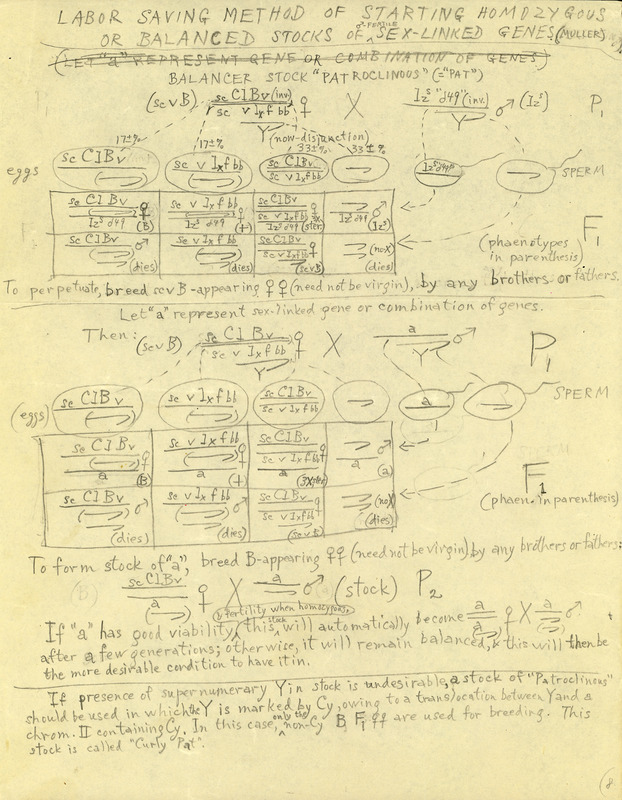 LABOR SAVING METHOD OF STARTING HOMOZYGOUS
OR BALANCED STOCKS OF ♂-FERTILE SEX-LINKED GENES (MULLER)
(LET "a" REPRESENT GENE OR COMBINATION OF GENES)
BALANCER STOCK "PATROCLINOUS" (="PAT")
(sc v B) sc ClBv (inv.) ♀ X Izˢ "d49" (inv.) ♂ (Izˢ) P₁
sc v Ixf bb Y
Y (non-disjunction)
17±% 17±% 33±% 33±%
eggs sc ClBv sc v Ixf bb sc ClBv Izˢ d49 SPERM
sc v Ixf bb
sc ClBv ♀ sc v Ixf bb ♀ sc ClBv ♂
Izˢ d49 (B) Izˢ d49 (+) sc v Ixf bb Izˢ d49 (Izˢ)
Izˢ d49 (ster.)
F₁
sc ClBv ♂ sc v Ixf bb ♂ sc ClBv (no X)
(dies) (dies) sc v Ixf bb ♀ (dies)
(sc v B)
(phaenotypes
in parenthesis)
To perpetuate, breed sc v B-appearing ♀♀ (need not be virgin), by any brothers or fathers.
Let "a" represent sex-linked gene or combination of genes.
Then: (sc v B) sc ClBv ♀ X a ♂ P₁
sc v Ixf bb Y
Y
(eggs) sc ClBv sc v Ixf bb sc ClBv a SPERM
sc v Ixf bb
sc ClBv ♀ sc v Ixf bb ♀ sc ClBv ♂
a (B) a (+) sc v Ixf bb a (a)
a (3X, ster.)
F₁
sc ClBv ♂ sc v Ixf bb ♂ sc ClBv (no X)
(dies) (dies) sc v Ixf bb ♀ (dies)
(sc v B)
(phaen. in parenthesis)
To form stock of "a", breed B-appearing ♀♀ (need not be virgin) by any brothers or fathers:
sc ClBv ♀ X a ♂ (stock) P₂
a
& fertility when homozygous,
If "a" has good viability, this stock will automatically become a ♀ X a ♂
a
after a few generations; otherwise, it will remain balanced, & this will then be
the more desirable condition to have it in.
If presence of supernumerary Y in stock is undesirable, a stock of "Patroclinous"
should be used in which the Y is marked by Cy, owing to a translocation between Y and a
chrom. II containing Cy. In this case, only the non-Cy B F₁ ♀♀ are used for breeding. This
stock is called "Curly Pat".
8